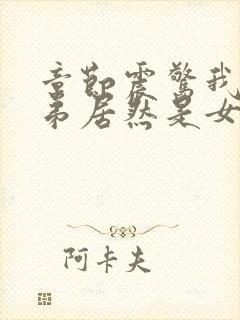 章节震惊我
弟居然是女
阿卡夫